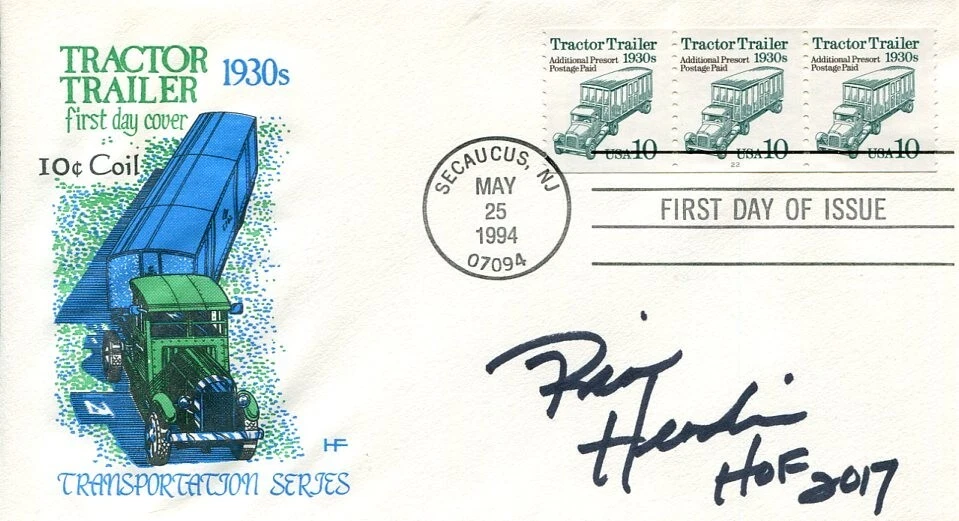 TRACTOR
TRAILER
1930s
first day cover
10¢ Coil
HF
TRANSPORTATION SERIES
Tractor Trailer
Additional Presort 1930s
Postage Paid
USA 10
Tractor Trailer
Additional Presort 1930s
Postage Paid
USA 10
22
Tractor Trailer
Additional Presort 1930s
Postage Paid
USA 10
SECAUCUS, NJ
MAY
25
1994
07094
FIRST DAY OF ISSUE
HOF 2017